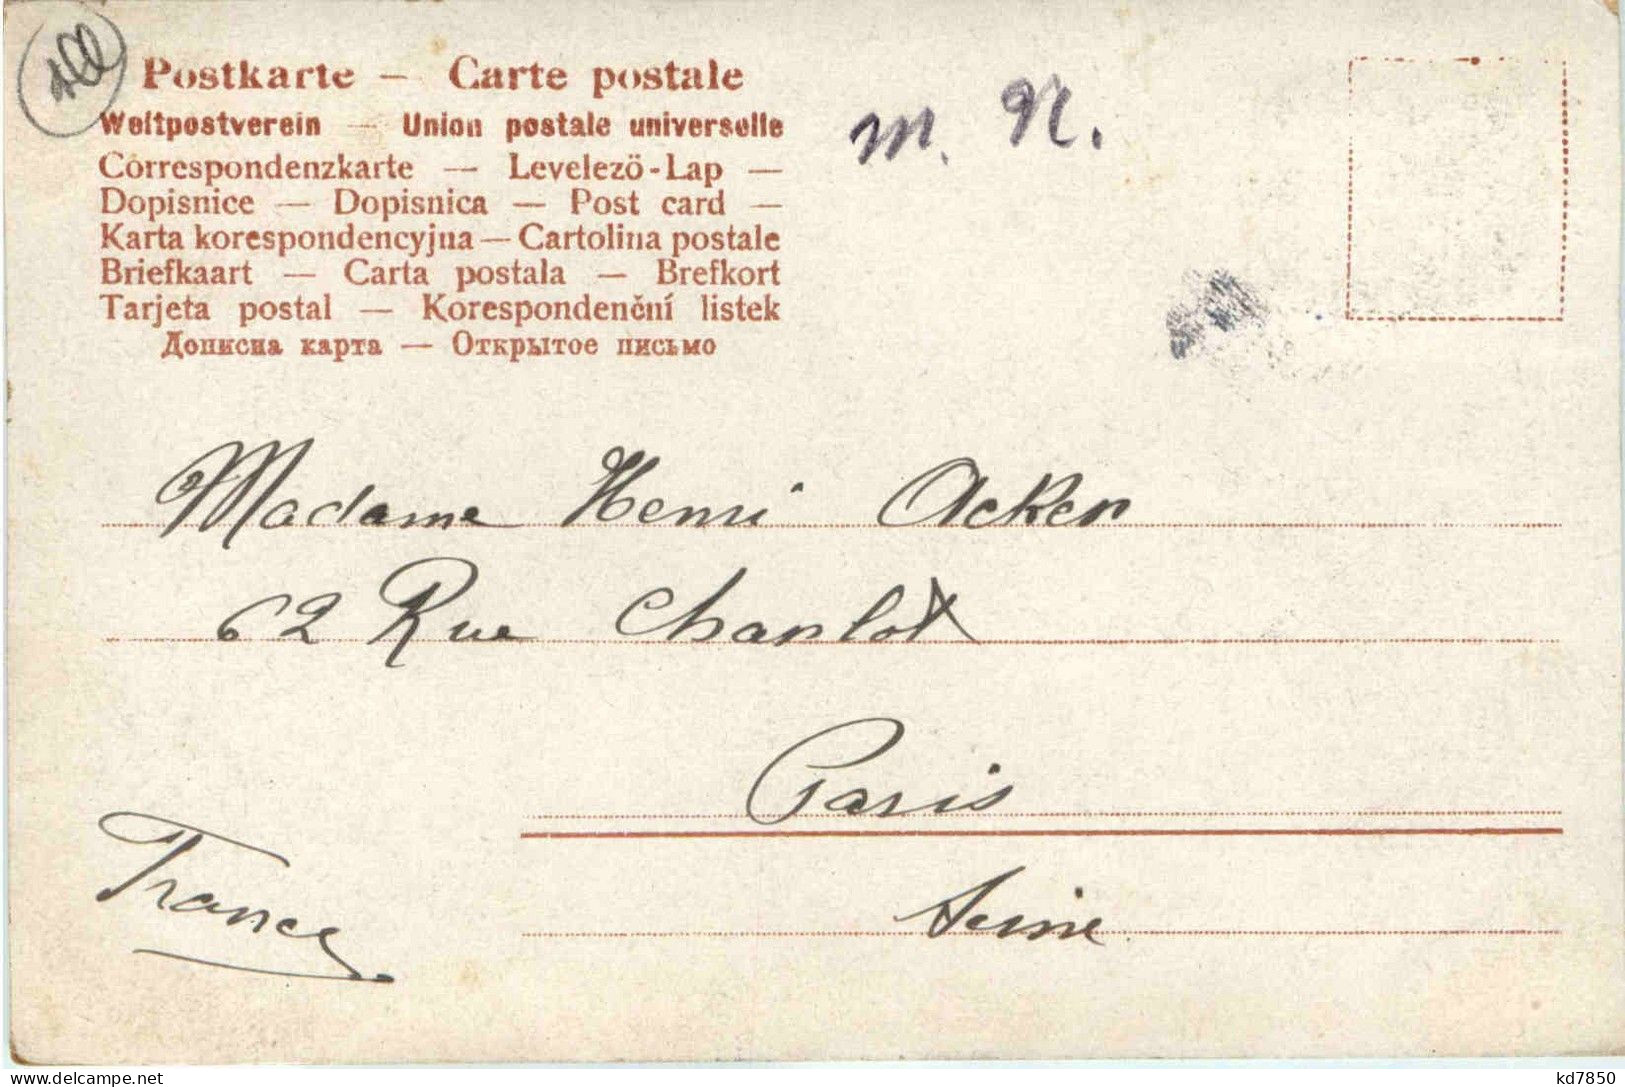 All
Postkarte — Carte postale
Weltpostverein — Union postale universelle
Correspondenzkarte — Levelezö-Lap —
Dopisnice — Dopisnica — Post card —
Karta korespondencyjna — Cartolina postale
Briefkaart — Carta postala — Brefkort
Tarjeta postal — Korespondenční listek
Дописна карта — Открытое письмо
m. N.
Madame Henri Acker
62 Rue Charlot
Paris
France
Seine
delcampe.net
kd7850